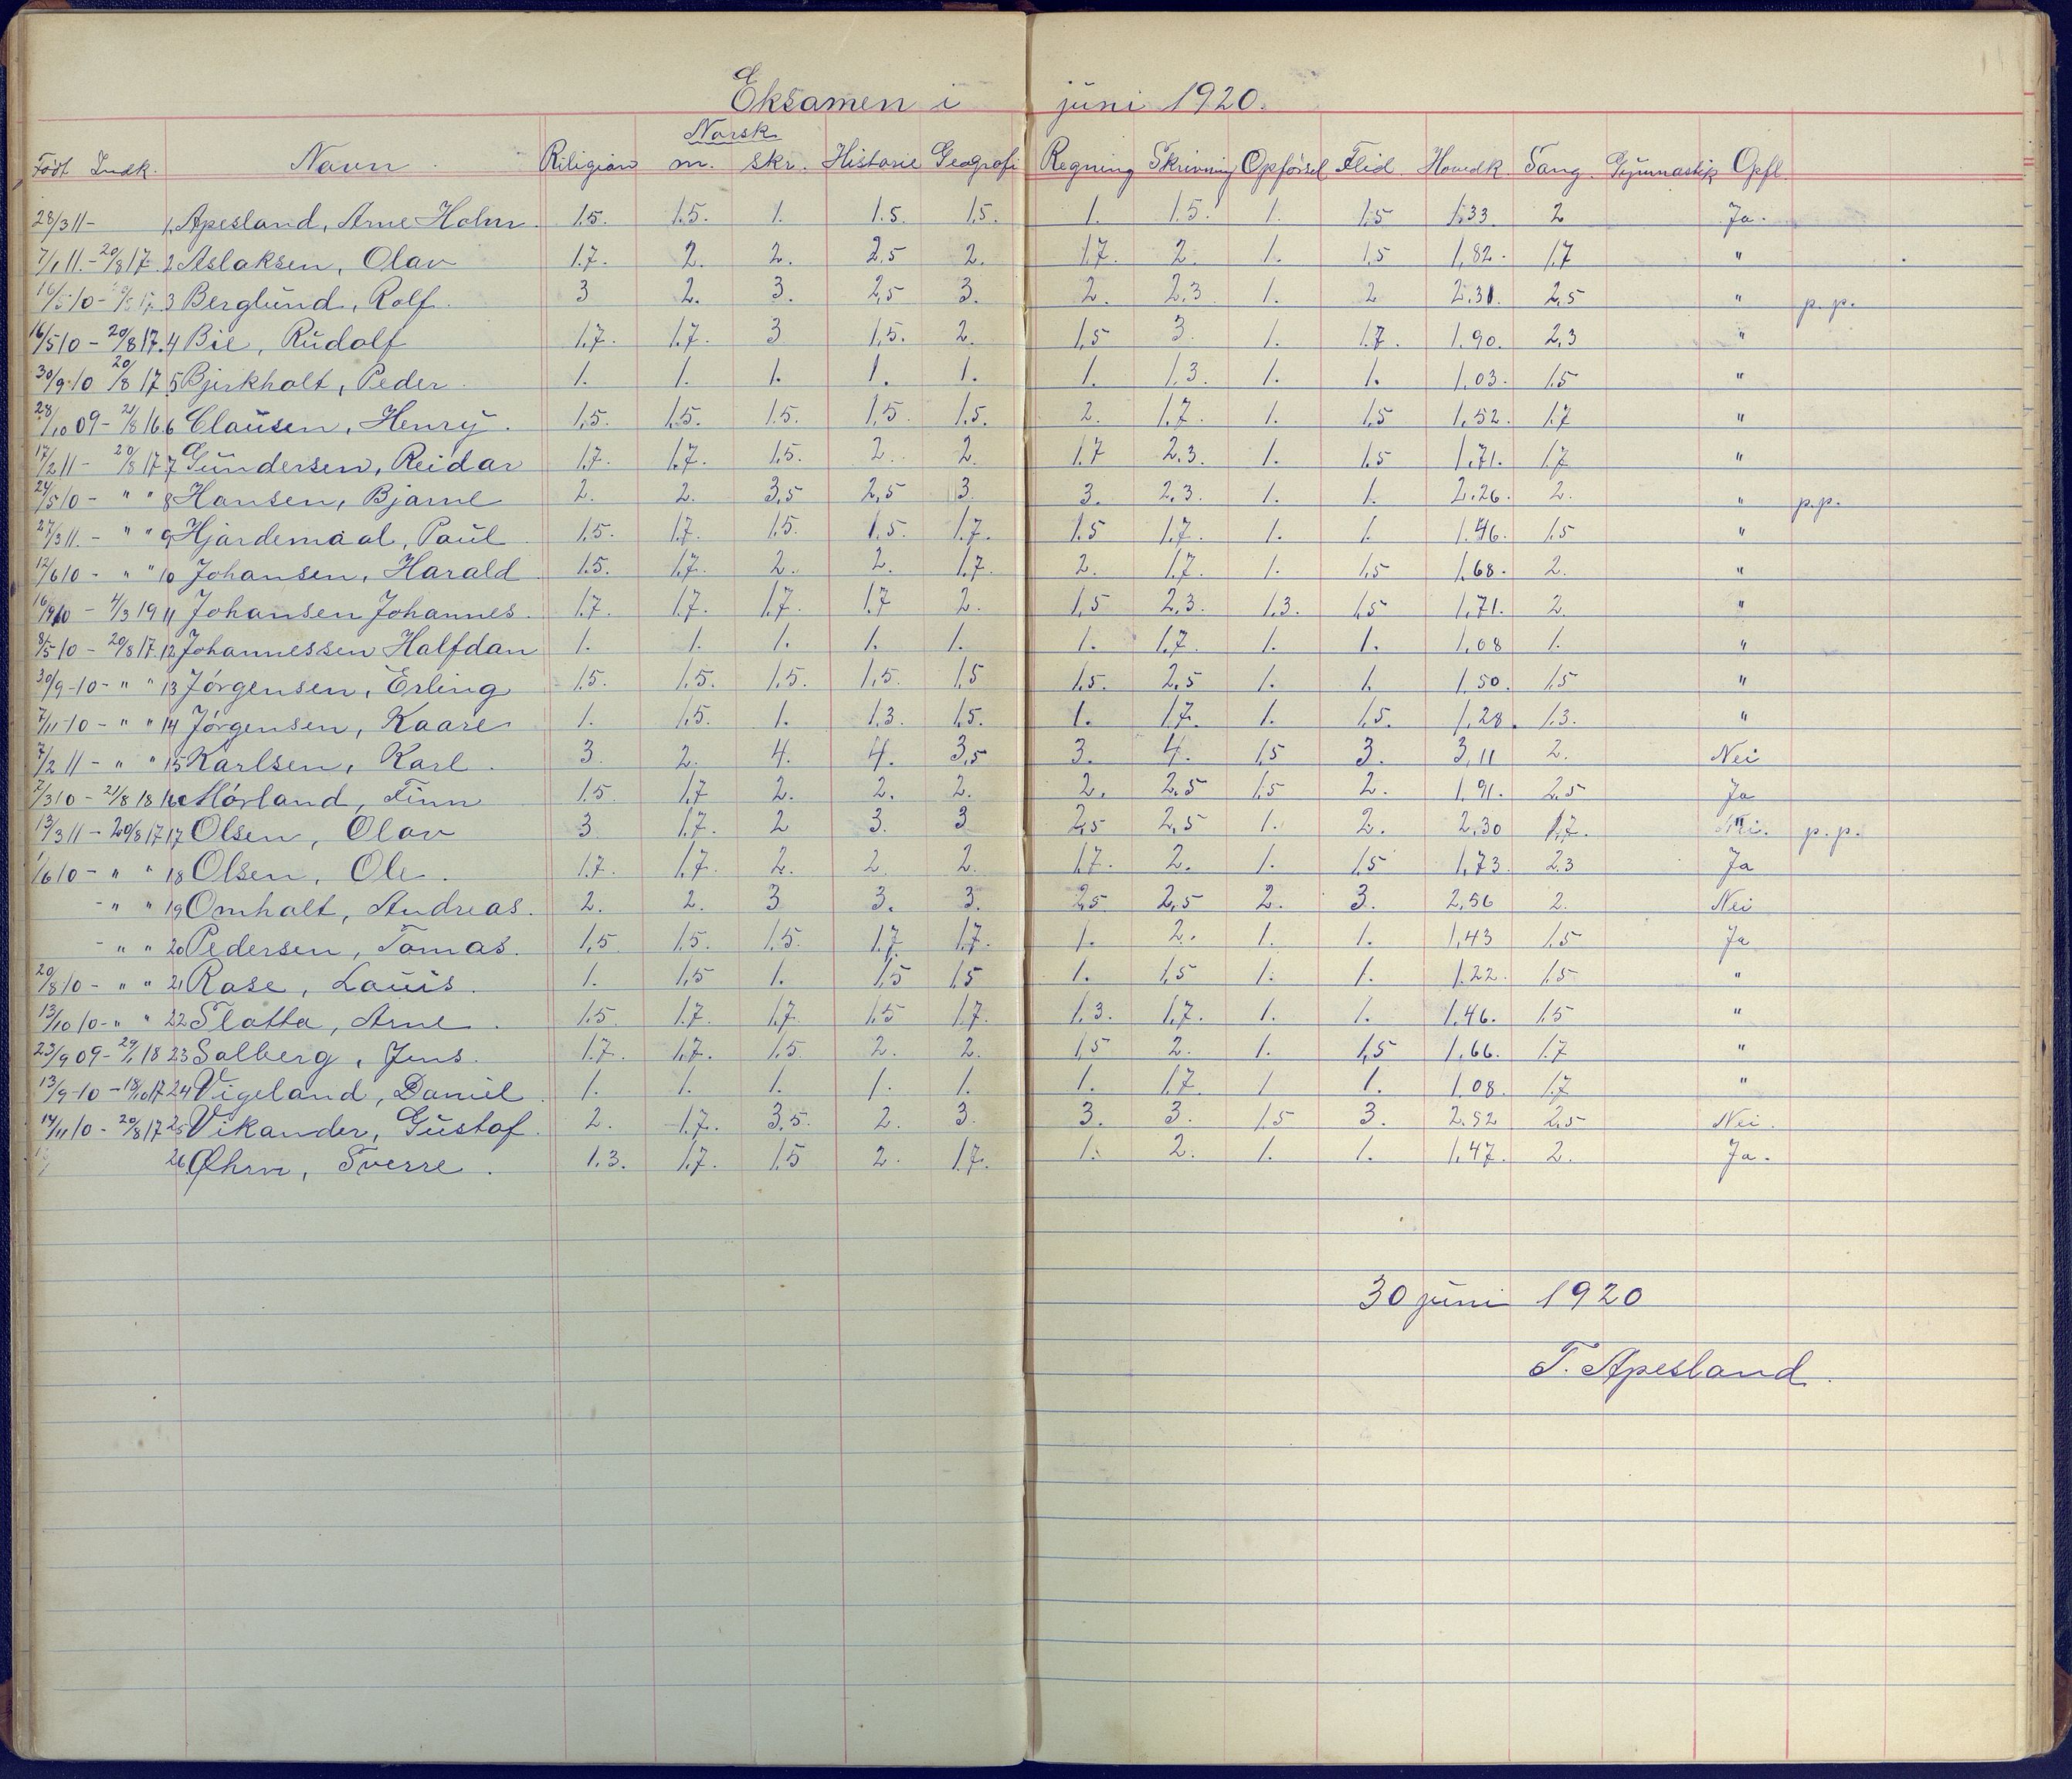 Eksamen i juni 1920.
Norsk
Födt Indk. Navn. Riligion m. skr. Historie Geografi Regning Skrivning Opförsel Flid. Hovedk. Sang. Gymnastik Opfl.
28/3 11 - 1. Apesland, Arne Holm. 1.5. 1.5. 1. 1.5. 1.5. 1. 1.5. 1. 1.5 1.33 2 Ja.
7/1 11. - 20/8 17. 2 Aslaksen, Olav 1.7. 2. 2. 2.5 2. 1.7. 2. 1. 1.5 1,82. 1.7 "
16/5 10 - 3 Berglund, Rolf. 3 2. 3. 2,5 3. 2. 2.3 1. 2 2.31. 2,5 " p.p.
16/5 10 - 20/8 17. 4 Bie, Rudolf 1.7. 1.7. 3 1,5. 2. 1,5 3. 1. 1.7. 1.90. 2,3 "
30/9 10 20/8 17 5 Bjerkholt, Peder. 1. 1. 1. 1. 1. 1. 1.3. 1. 1. 1.03. 1.5 "
28/10 09 - 21/8 16 6 Clausen, Henry. 1.5. 1.5. 1.5. 1.5. 1.5. 2. 1.7. 1. 1,5 1,52. 1.7 "
17/2 11 - 20/8 17 7 Gundersen, Reidar 1.7. 1.7. 1.5. 2. 2. 1.7 2.3. 1. 1.5 1.71. 1.7 "
24/5 10 - " " 8 Hansen, Bjarne 2. 2. 3,5 2,5 3. 3. 2,3 1. 1. 2.26. 2. " p.p.
27/3 11. - " " 9 Hjardemaal, Paul 1.5. 1.7. 1.5. 1.5. 1.7. 1.5 1.7. 1. 1. 1.46. 1.5 "
12/6 10 - " " 10 Johansen, Harald. 1.5. 1.7. 2. 2. 1.7. 2. 1.7. 1. 1,5 1.68. 2. "
16/9 10 - 4/3 19 11 Johansen Johannes. 1.7. 1.7. 1.7. 1.7 2. 1,5 2,3. 1,3. 1.5 1,71. 2. "
8/5 10 - 20/8 17. 12 Johannessen Halfdan 1. 1. 1. 1. 1. 1. 1.7. 1. 1. 1,08 1. "
30/9 - 10 - " " 13 Jörgensen, Erling 1.5. 1,5. 1,5. 1,5. 1,5 1,5. 2,5 1. 1. 1.50. 1,5 "
7/11 - 10 - " " 14 Jörgensen, Kaare 1. 1,5. 1. 1.3. 1.5. 1. 1.7. 1. 1,5. 1,28. 1.3. "
7/2 11 - " " 15 Karlsen, Karl. 3. 2. 4. 4. 3,5 3. 4. 1,5 3. 3,11 2. Nei
2/3 10 - 21/8 18 16 Mörland, Finn 1.5. 1,7 2. 2. 2. 2. 2.5 1,5 2. 1.91. 2,5 Ja
13/3 11 - 20/8 17 17 Olsen, Olav 3 1.7. 2 3. 3 2,5 2,5 1. 2. 2,30 1.7. p.p.
1/6 10 - " " 18 Olsen, Ole. 1.7. 1.7 2. 2. 2. 1.7. 2. 1. 1.5 1,73. 2.3 Ja
- " " 19 Omholt, Andreas. 2. 2. 3 3. 3. 2,5 2,5 2. 3. 2,56 2. Nei
- " " 20 Pedersen, Tomas. 1,5 1.5. 1.5. 1.7. 1.7. 1. 2. 1. 1. 1,43 1.5 Ja
20/8 10 - " " 21 Rose, Louis. 1. 1,5 1. 1,5 1,5 1. 1,5 1. 1. 1.22. 1.5 "
13/10 10 - " " 22 Slotta, Arne. 1.5 1.7. 1.7. 1.5 1.7. 1.3. 1.7. 1. 1. 1.46. 1.5 "
23/9 09 - 29/1 18 23 Solberg, Jens. 1.7. 1.7. 1.5. 2. 2. 1,5 2. 1. 1,5 1.66. 1.7 "
13/9 - 10 - 18/10 17 24 Vigeland, Daniel. 1. 1. 1. 1. 1. 1. 1.7 1 1. 1.08. 1.7 "
14/11 10 - 20/8 17 25 Vikander, Gustof. 2. 1.7. 3,5. 2. 3. 3. 3. 1.5 3. 2.52 2,5 Nei.
26 Øhrn, Sverre. 1.3. 1.7. 1.5 2. 1.7. 1. 2. 1. 1. 1,47. 2. Ja.
30 juni 1920
T. Apesland.